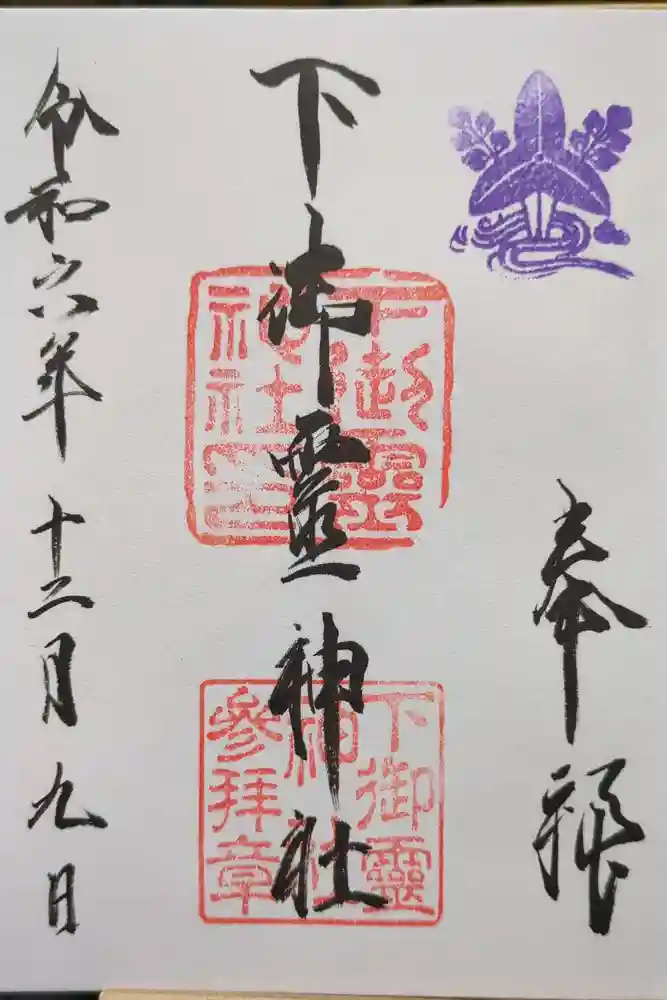 奉
下御霊神社
令和六年十二月九日
下御靈
神社
下御靈
神社
參拝章